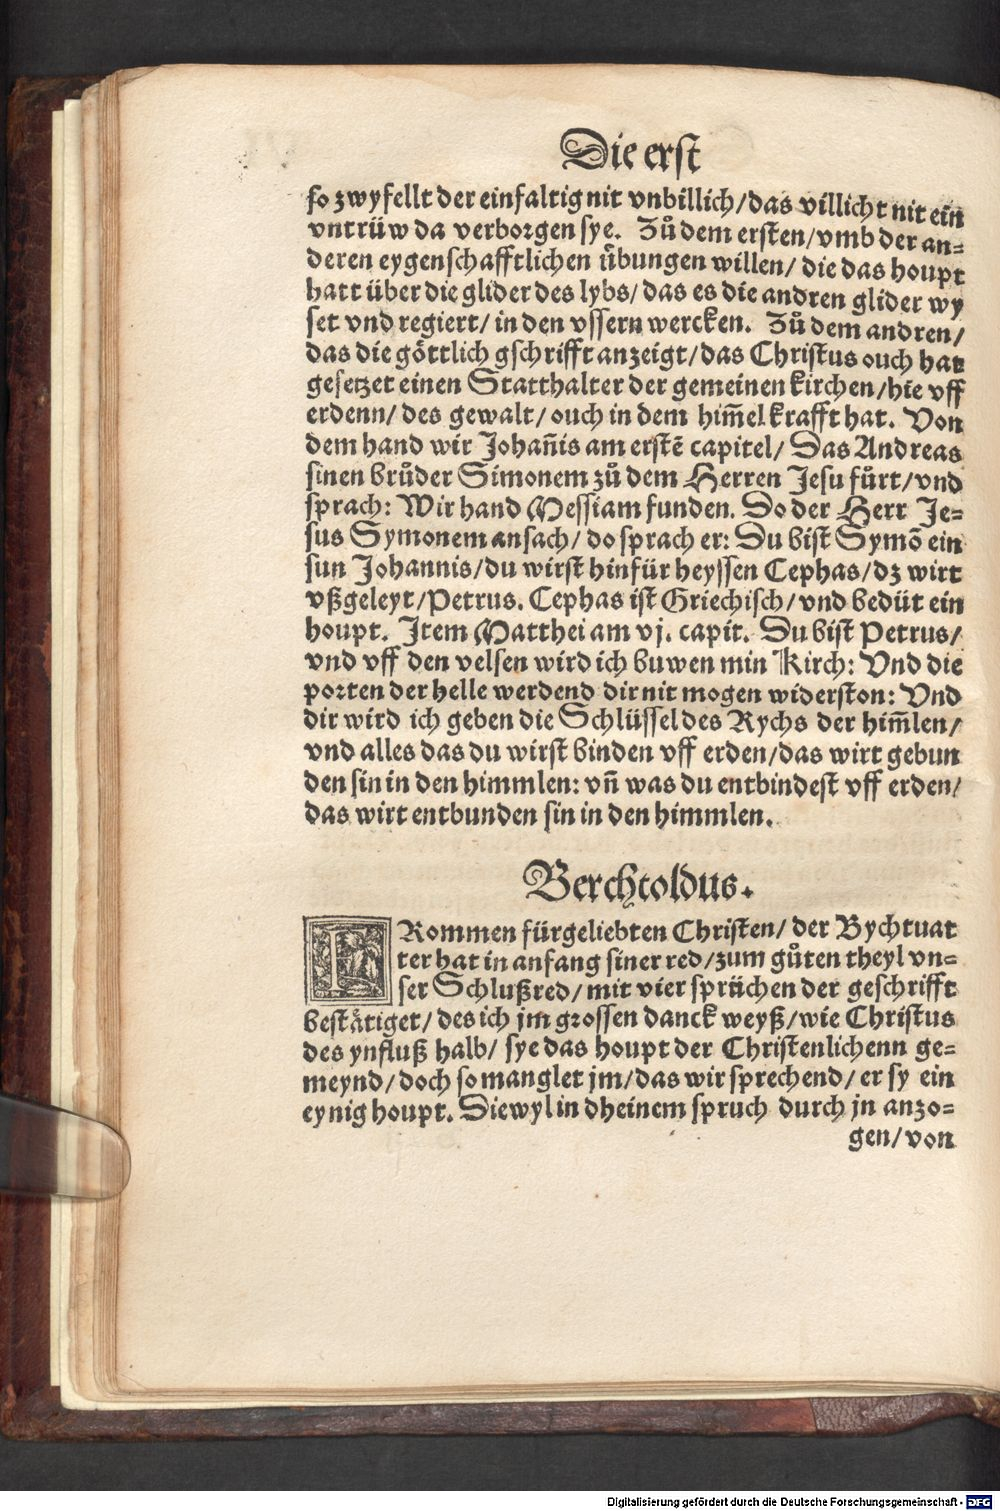 Die erst
so zwyfellt der einfaltig nit vnbillich/das villicht nit ein
vntrüw da verborgen sye. Zů dem ersten/vmb der an-
deren eygenschafftlichen übungen willen/ die das houpt
hatt über die glider des lybs/das es die andren glider wy
set vnd regiert/ in den vssern wercken. Zů dem andren/
das die göttlich gschrifft anzeigt/das Christus ouch hat
gesetzet einen Statthalter der gemeinen kirchen/hie vff
erdenn/ des gewalt/ ouch in dem him̃el krafft hat. Von
dem hand wir Johañis am erstẽ capitel/ Das Andreas
sinen brůder Simonem zů dem Herren Jesu fůrt/vnd
sprach: Wir hand Messiam funden. Do der Herr Je-
sus Symonem ansach/ do sprach er: Du bist Symõ ein
sun Johannis/du wirst hinfür heyssen Cephas/dz wirt
vßgeleyt/Petrus. Cephas ist Griechisch/vnd bedüt ein
houpt. Jtem Matthei am vj. capit. Du bist Petrus/
vnd vff den velsen wird ich buwen min Kirch: Vnd die
porten der helle werdend dir nit mogen widerston: Vnd
dir wird ich geben die Schlüssel des Rychs der him̃len/
vnd alles das du wirst binden vff erden/das wirt gebun
den sin in den himmlen: vñ was du entbindest vff erden/
das wirt entbunden sin in den himmlen.
Berchtoldus.
FRommen fürgeliebten Christen/ der Bychtuat
ter hat in anfang siner red/zum gůten theyl vn-
ser Schlußred/mit vier sprüchen der geschrifft
bestätiget/des ich jm grossen danck weyß/wie Christus
des ynfluß halb/ sye das houpt der Christenlichenn ge-
meynd/doch so manglet jm/das wir sprechend/er sy ein
eynig houpt. Diewyl in dheinem spruch durch jn anzo-
gen/von
Digitalisierung gefördert durch die Deutsche Forschungsgemeinschaft - DFG